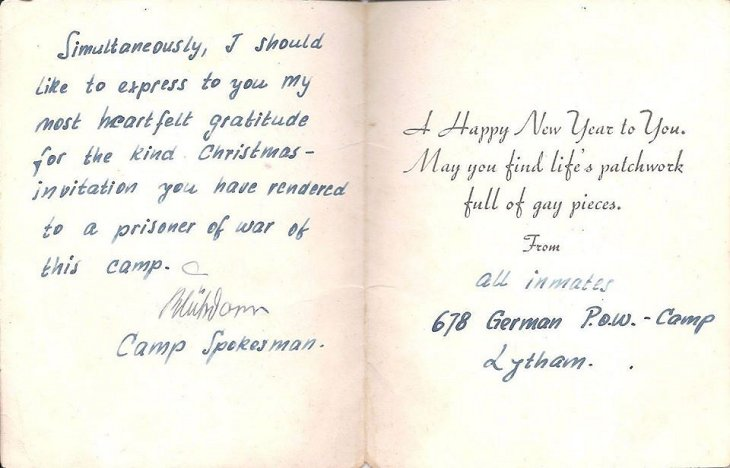 Simultaneously, I should
like to express to you my
most heartfelt gratitude
for the kind Christmas-
invitation you have rendered
to a prisoner of war of
this camp.
Camp Spokesman.
A Happy New Year to You.
May you find life's patchwork
full of gay pieces.
From
all inmates
678 German P.o.W.-Camp
Lytham.